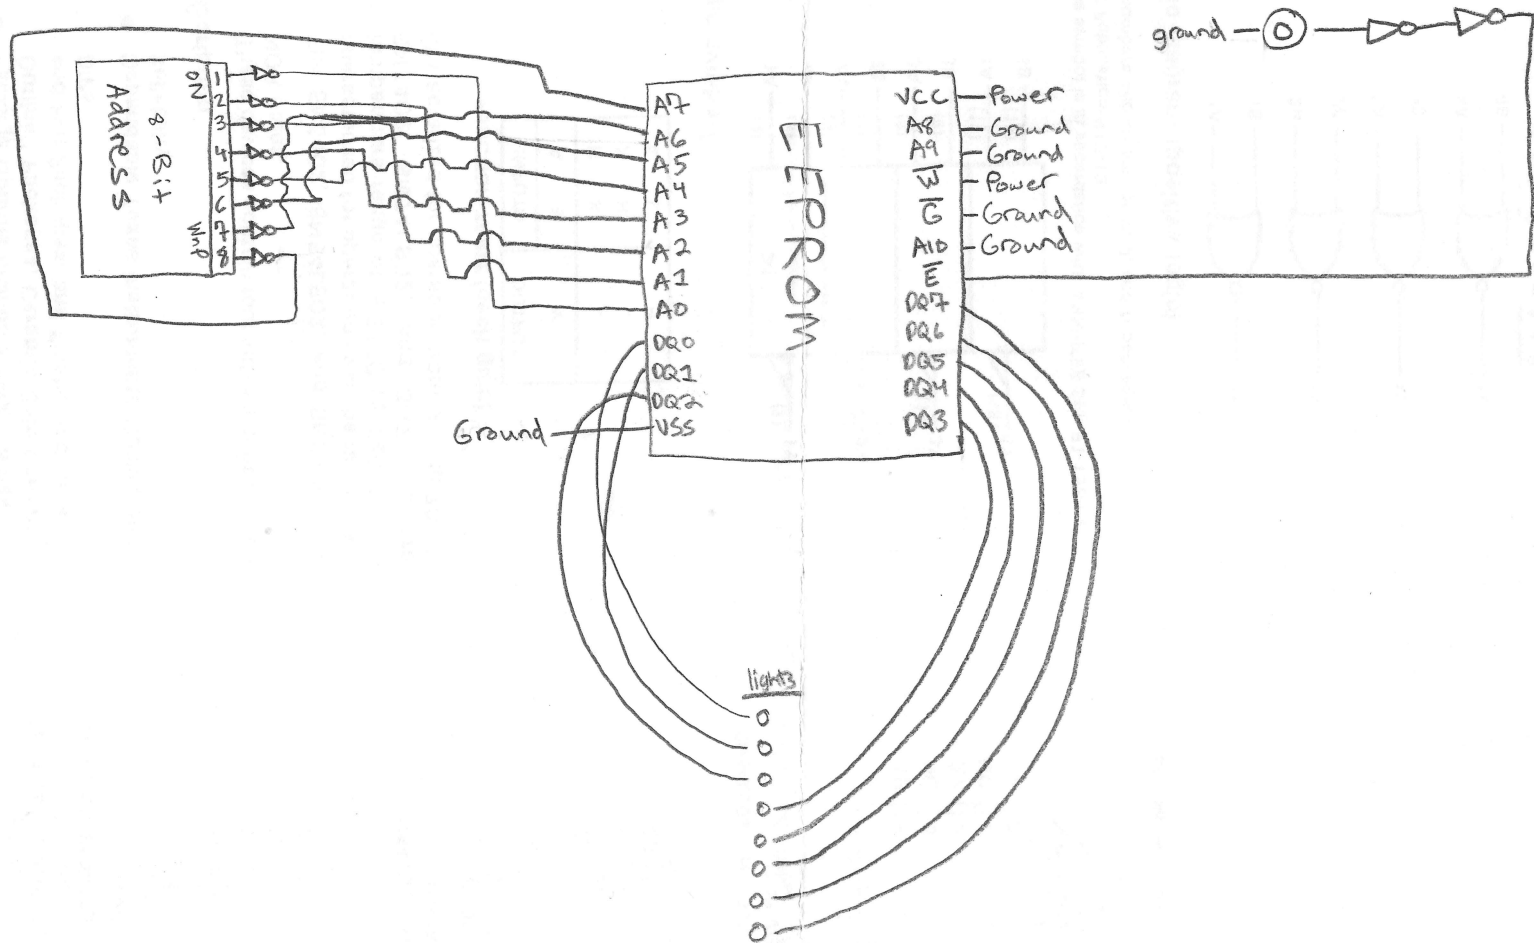 ground
8-Bit
Address
ON
1
2
3
4
5
6
7
8
EEPROM
A7
A6
A5
A4
A3
A2
A1
A0
DQ0
DQ1
DQ2
VSS
Ground
VCC Power
A8 Ground
A9 Ground
W Power
G Ground
A10 Ground
E
DQ7
DQ6
DQ5
DQ4
DQ3
lights